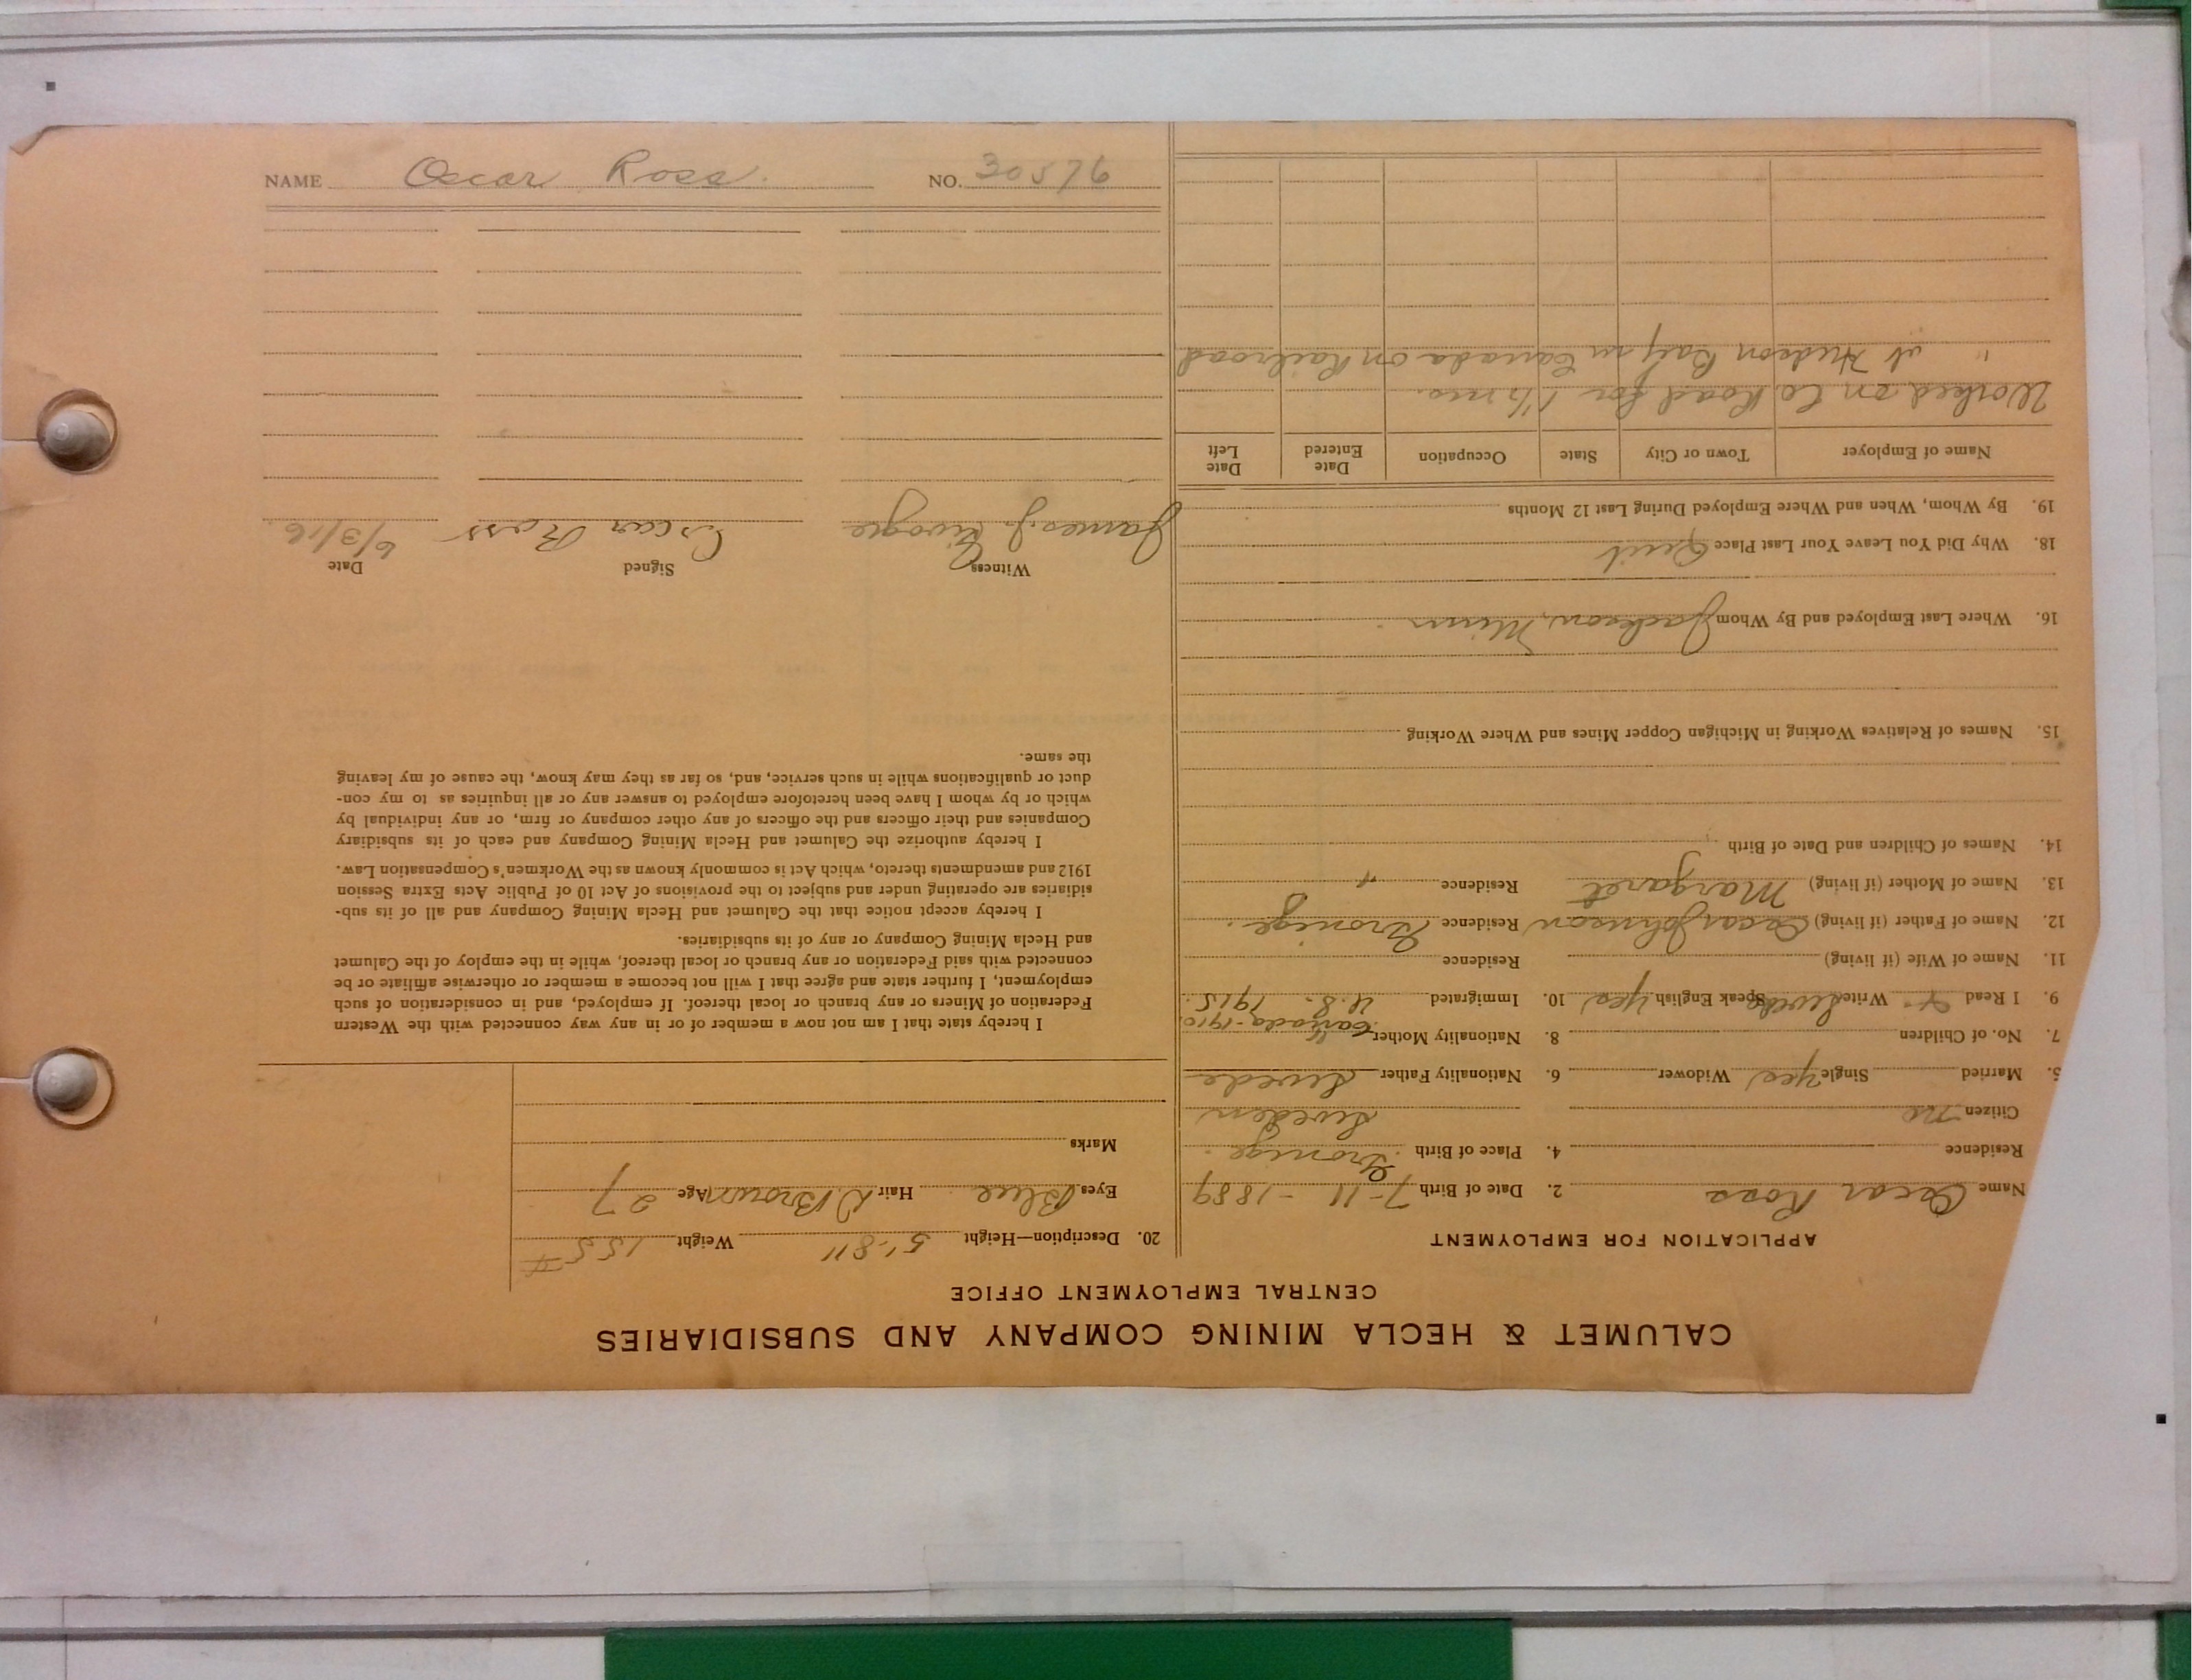 CALUMET & HECLA MINING COMPANY AND SUBSIDIARIES
CENTRAL EMPLOYMENT OFFICE
APPLICATION FOR EMPLOYMENT
Name Oscar Ross 2. Date of Birth 7-11-1889
Residence 4. Place of Birth
Citizen no Sweden
5. Married Single Yes Widower 6. Nationality Father Swede
7. No. of Children 8. Nationality Mother Canada-1910
9. I Read Write Swede Speak English Yes 10. Immigrated U.S. 1915.
11. Name of Wife (if living) Residence
12. Name of Father (if living) Oscar Johnson Residence
13. Name of Mother (if living) Margaret Residence "
14. Names of Children and Date of Birth
15. Names of Relatives Working in Michigan Copper Mines and Where Working
16. Where Last Employed and By Whom Jackson, Minn
18. Why Did You Leave Your Last Place Quit
19. By Whom, When and Where Employed During Last 12 Months
Name of Employer Town or City State Occupation Date Entered Date Left
Worked on Co Road for 1½ mo.
" at Hudson Bay in Canada on Railroad
20. Description—Height 5'-8" Weight 155#
Eyes Blue Hair D Brown Age 27
Marks
I hereby state that I am not now a member of or in any way connected with the Western
Federation of Miners or any branch or local thereof. If employed, and in consideration of such
employment, I further state and agree that I will not become a member or otherwise affiliate or be
connected with said Federation or any branch or local thereof, while in the employ of the Calumet
and Hecla Mining Company or any of its subsidiaries.
I hereby accept notice that the Calumet and Hecla Mining Company and all of its sub-
sidiaries are operating under and subject to the provisions of Act 10 of Public Acts Extra Session
1912 and amendments thereto, which Act is commonly known as the Workmen's Compensation Law.
I hereby authorize the Calumet and Hecla Mining Company and each of its subsidiary
Companies and their officers and the officers of any other company or firm, or any individual by
which or by whom I have been heretofore employed to answer any or all inquiries as to my con-
duct or qualifications while in such service, and, so far as they may know, the cause of my leaving
the same.
Witness Signed Date
James J. Oscar Ross 6/3/16
NAME Oscar Ross. NO. 30576